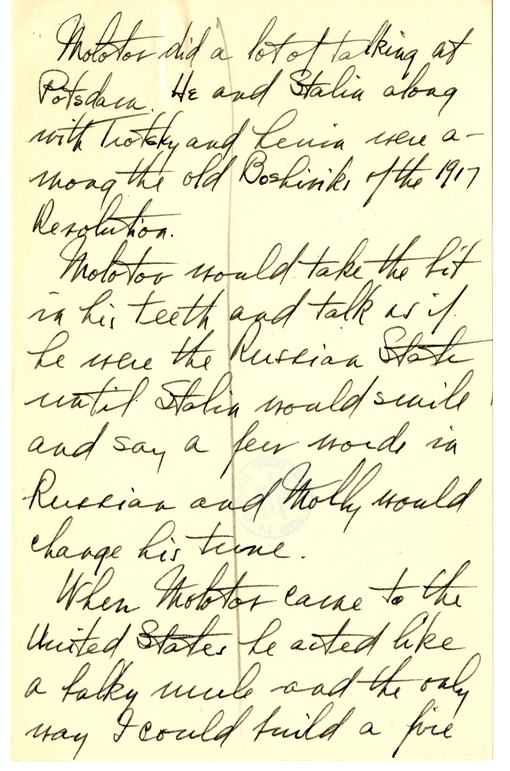 Molotov did a lot of talking at
Potsdam. He and Stalin along
with Trotsky and Lenin were a-
mong the old Boshiviks of the 1917
Revolution.
Molotov would take the bit
in his teeth and talk as if
he were the Russian State
until Stalin would smile
and say a few words in
Russian and Molly would
change his tune.
When Molotov came to the
United States he acted like
a balky mule and the only
way I could build a fire